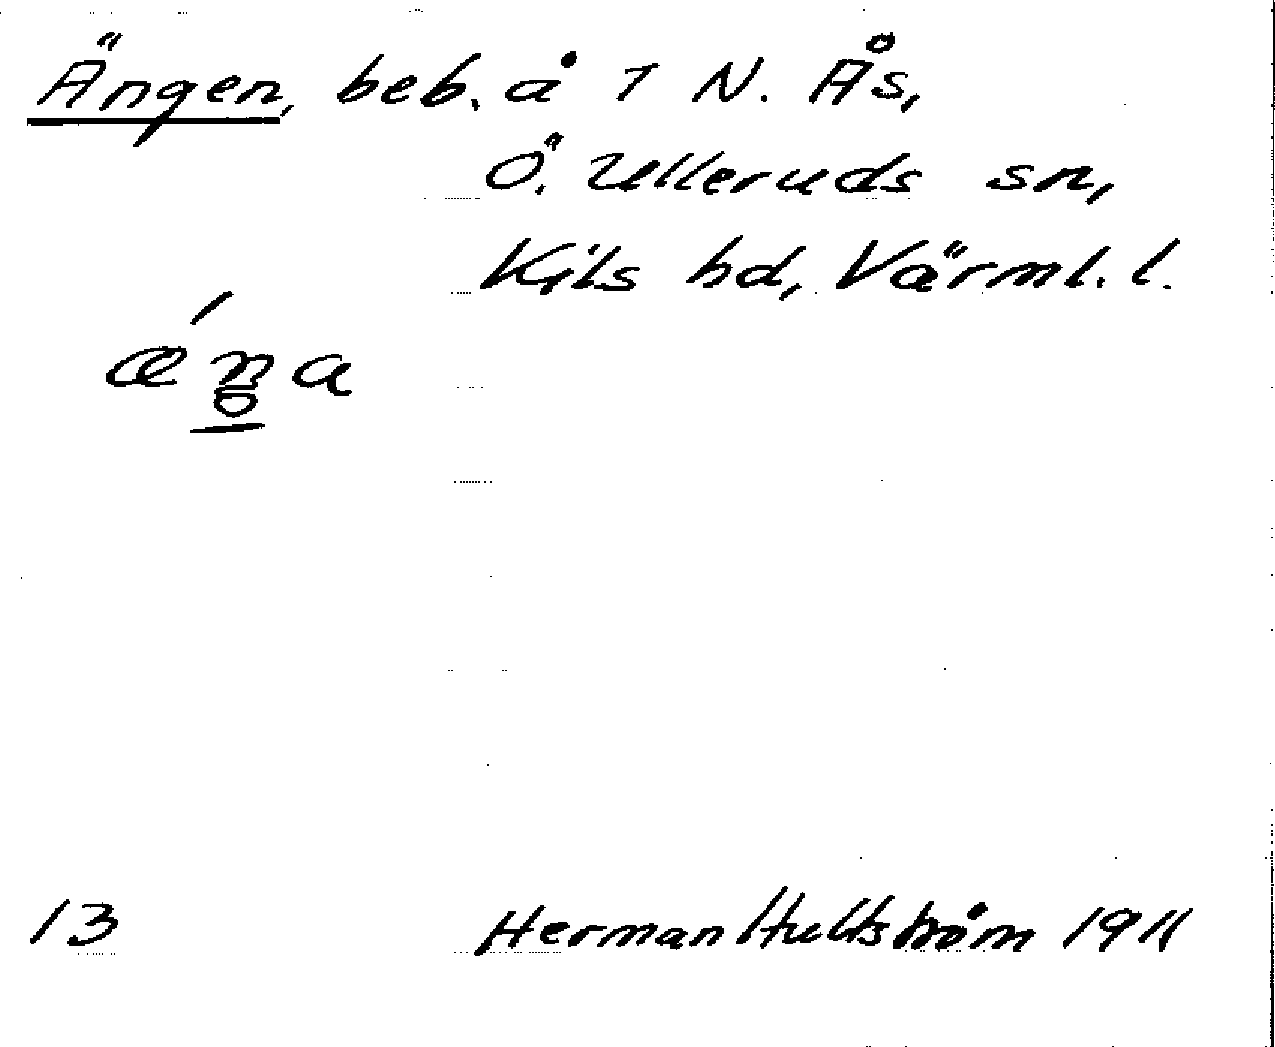 Ängen, beb. å 1 N. Ås,
Ö. Ulleruds sn,
Kils hd, Värml. l.
ǽŋa
13 Herman Hultström 1911